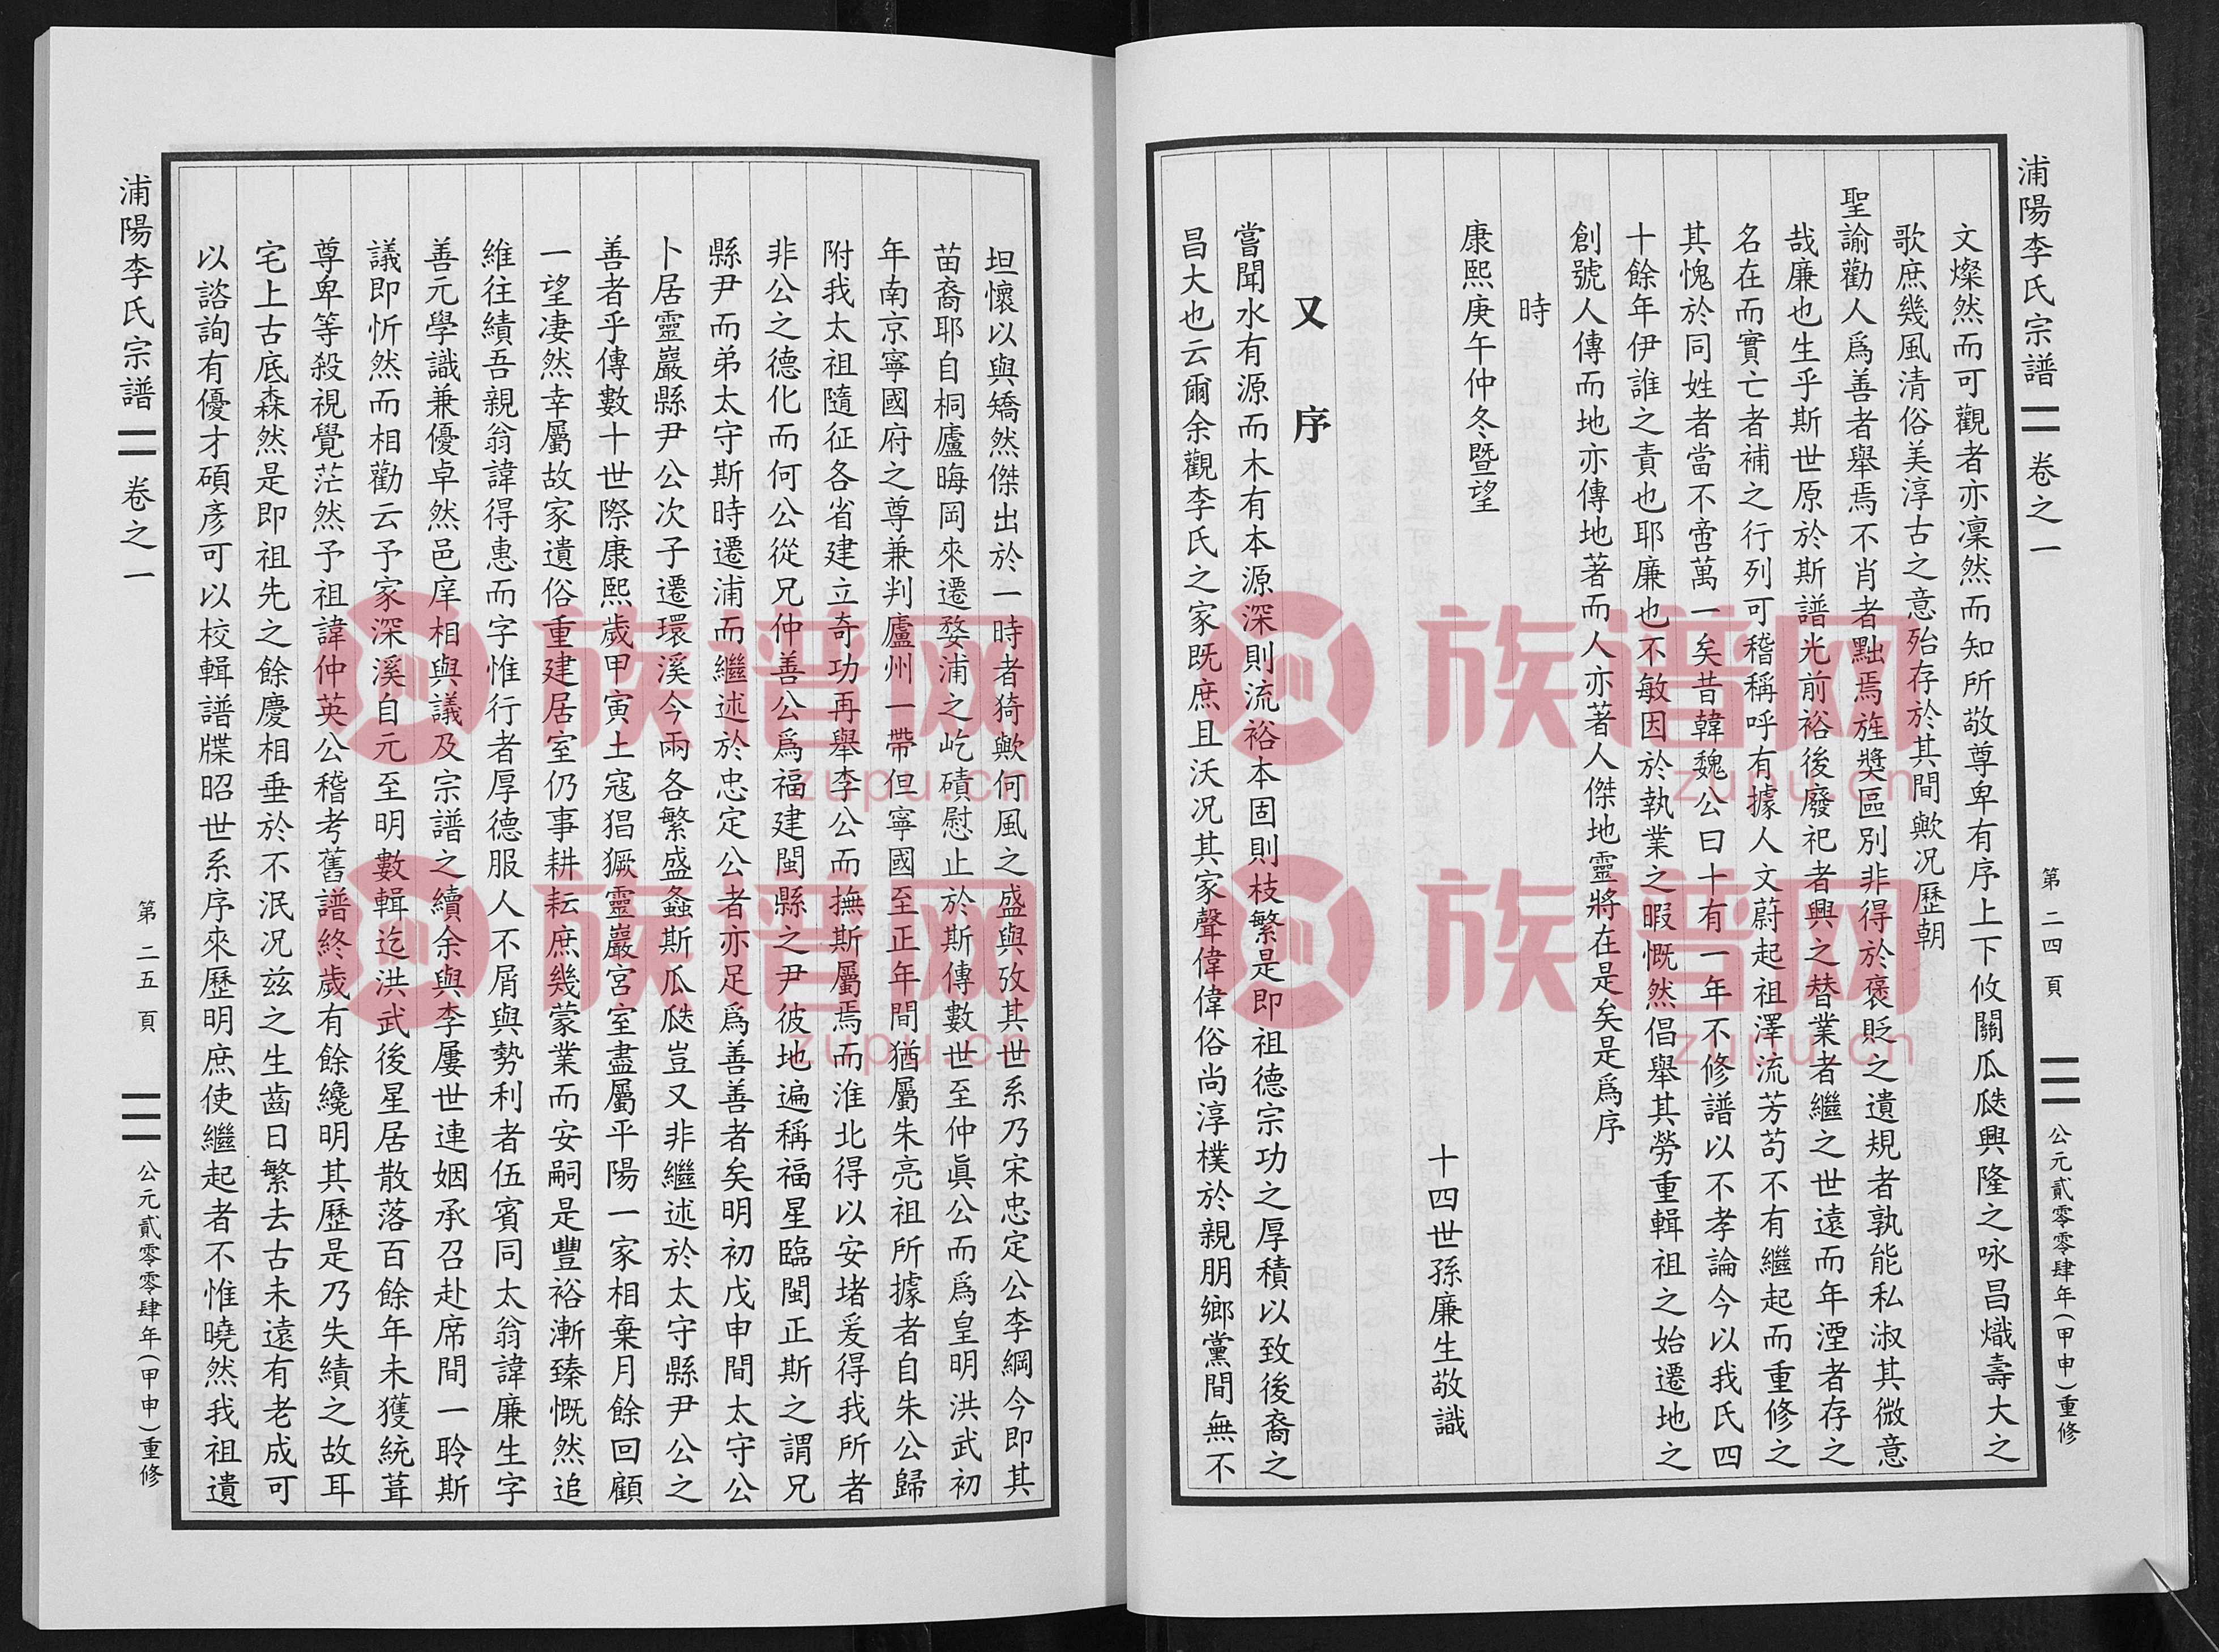 浦陽李氏宗譜 卷之一 第二四頁 公元貳零零肆年(甲申)重修
文燦然而可觀者亦凜然而知所敬尊卑有序上下攸關瓜瓞興隆之咏昌熾壽大之
歌庶幾風清俗美淳古之意殆存於其間歟况歷朝
聖諭勸人爲善者舉焉不肖者黜焉旌獎區別非得於褒貶之遺規者孰能私淑其微意
哉廉也生乎斯世原於斯譜光前裕後廢祀者興之替業者繼之世遠而年湮者存之
名在而實亡者補之行列可稽稱呼有據人文蔚起祖澤流芳苟不有繼起而重修之
其愧於同姓者當不啻萬一矣昔韓魏公曰十有一年不修譜以不孝論今以我氏四
十餘年伊誰之責也耶廉也不敏因於執業之暇慨然倡舉其勞重輯祖之始遷地之
創號人傳而地亦傳地著而人亦著人傑地靈將在是矣是爲序
時
康熙庚午仲冬暨望
十四世孫廉生敬識
又序
嘗聞水有源而木有本源深則流裕本固則枝繁是即祖德宗功之厚積以致後裔之
昌大也云爾余觀李氏之家既庶且沃况其家聲偉偉俗尚淳樸於親朋鄉黨間無不
坦懷以與矯然傑出於一時者猗歟何風之盛與攷其世系乃宋忠定公李綱今即其
苗裔耶自桐廬晦岡來遷婺浦之屹磧慰止於斯傳數世至仲眞公而爲皇明洪武初
年南京寧國府之尊兼判廬州一帶但寧國至正年間猶屬朱亮祖所據者自朱公歸
附我太祖隨征各省建立奇功再舉李公而撫斯屬焉而淮北得以安堵爰得我所者
非公之德化而何公從兄仲善公爲福建閩縣之尹彼地遍稱福星臨閩正斯之謂兄
縣尹而弟太守斯時遷浦而繼述於忠定公者亦足爲善善者矣明初戊申間太守公
卜居靈巖縣尹公次子遷環溪今兩各繁盛螽斯瓜瓞豈又非繼述於太守縣尹公之
善者乎傳數十世際康熙歲甲寅土寇猖獗靈巖宮室盡屬平陽一家相棄月餘回顧
一望凄然幸屬故家遺俗重建居室仍事耕耘庶幾蒙業而安嗣是豐裕漸臻慨然追
維往績吾親翁諱得惠而字惟行者厚德服人不屑與勢利者伍賓同太翁諱廉生字
善元學識兼優卓然邑庠相與議及宗譜之續余與李屢世連姻承召赴席間一聆斯
議即忻然而相勸云予家深溪自元至明數輯迄洪武後星居散落百餘年未獲統葺
尊卑等殺視覺茫然予祖諱仲英公稽考舊譜終歲有餘纔明其歷是乃失績之故耳
宅上古底森然是即祖先之餘慶相垂於不泯况兹之生齒日繁去古未遠有老成可
以諮詢有優才碩彥可以校輯譜牒昭世系序來歷明庶使繼起者不惟曉然我祖遺
浦陽李氏宗譜 卷之一 第二五頁 公元貳零零肆年(甲申)重修
族谱网
zupu.cn
族谱网
zupu.cn
族谱网
zupu.cn
族谱网
zupu.cn